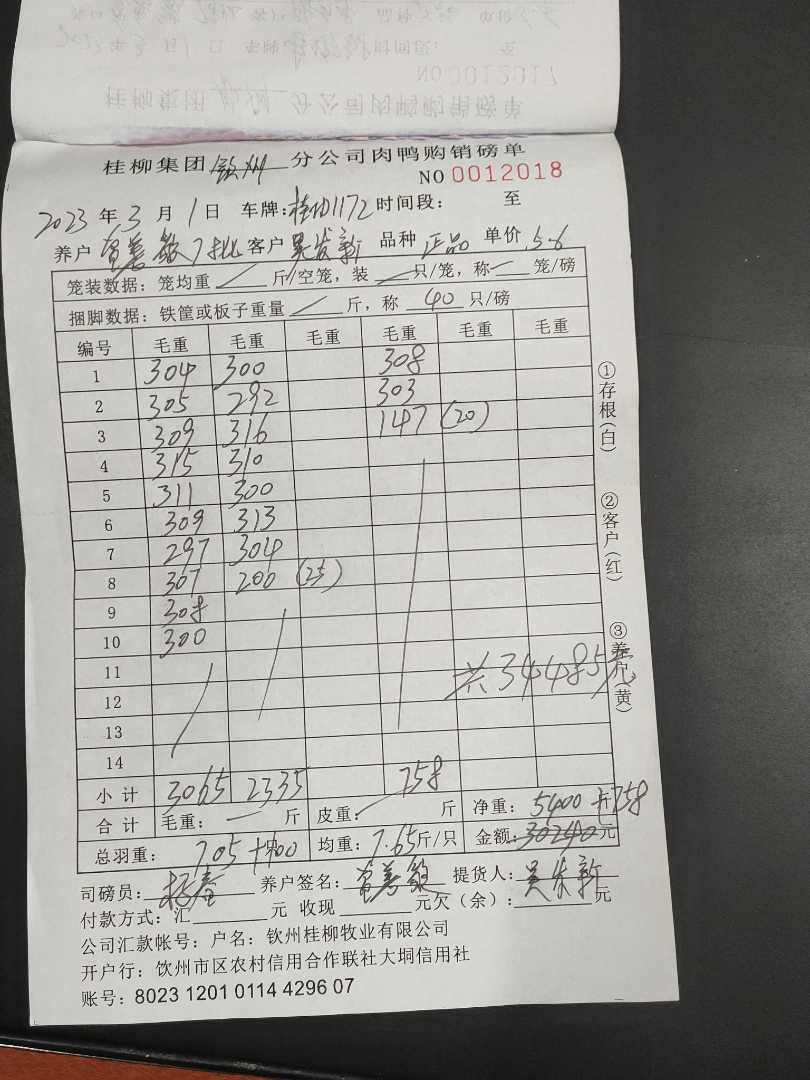 NO 0012017
桂柳集团 钦州 分公司肉鸭购销磅单
NO 0012018
2023 年 3 月 1 日 车牌: 1172 时间段: 至
养户 7批 客户 吴发新 品种 正品 单价 5.6
笼装数据: 笼均重 斤/空笼, 装 只/笼, 称 笼/磅
捆脚数据: 铁筐或板子重量 斤, 称 40 只/磅
编号 毛重 毛重 毛重 毛重 毛重 毛重
1 304 300 308
2 305 292 303
3 309 316 147 (20)
4 315 310
5 311 300
6 309 313
7 297 304
8 307 200 (25)
9 308
10 300
11
12
13
14
共34485元
小计 3065 2335 758
合计 毛重: 斤 皮重: 斤 净重: 5400 +758
总羽重: 705+100 均重: 7.65斤/只 金额: 30240元
司磅员: 养户签名: 提货人: 吴发新
付款方式: 汇 元 收现 元欠(余): 元
公司汇款帐号: 户名: 钦州桂柳牧业有限公司
开户行: 钦州市区农村信用合作联社大垌信用社
账号: 8023 1201 0114 4296 07
①存根(白)
②客户(红)
③养户(黄)